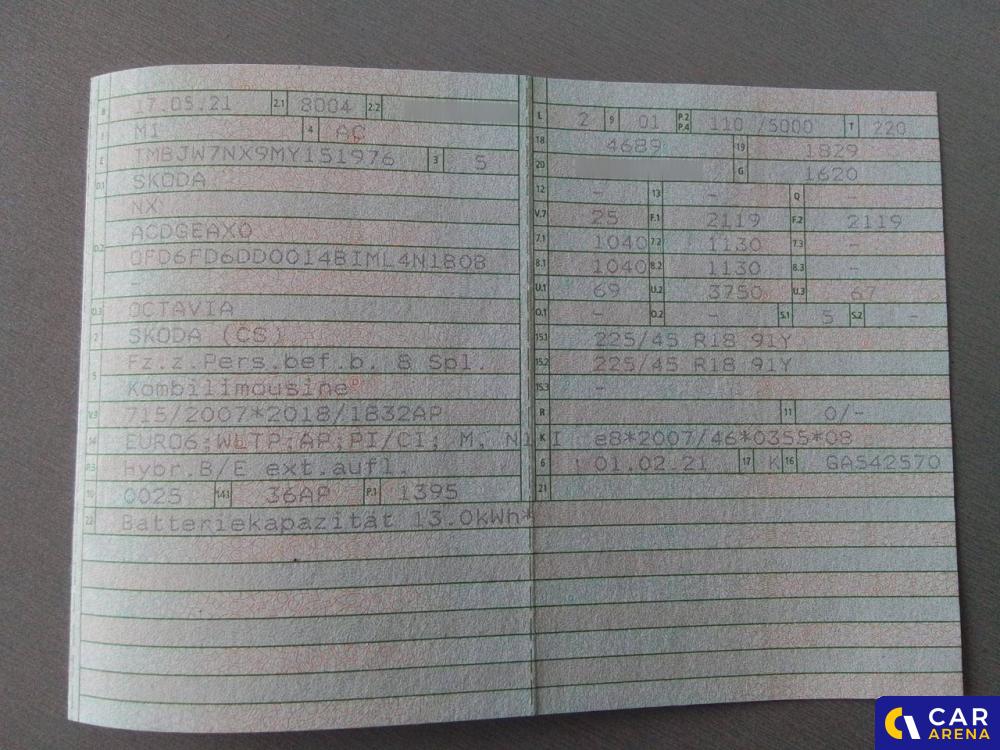 B 17.05.21 2.1 8004 2.2
J M1 4 AC
E TMBJW7NX9MY151976 3 5
D.1 SKODA
NX
D.2 ACDGEAX0
0FD6FD6DD0014BIML4N1808
-
D.3 OCTAVIA
2 SKODA (CS)
5 Fz.z.Pers.bef.b. 8 Spl.
Kombilimousine
V.9 715/2007*2018/1832AP
14 EURO6;WLTP;AP;PI/CI; M, N1 I
P.3 Hybr.B/E ext.aufl.
10 0025 14.1 36AP P.1 1395
22 Batteriekapazität 13.0kWh*
L 2 9 01 P.2 P.4 110 /5000 T 220
18 4689 19 1829
20 G 1620
12 - 13 - Q -
V.7 25 F.1 2119 F.2 2119
7.1 1040 7.2 1130 7.3 -
8.1 1040 8.2 1130 8.3 -
U.1 69 U.2 3750 U.3 67
O.1 - O.2 - S.1 5 S.2 -
15.1 225/45 R18 91Y
15.2 225/45 R18 91Y
15.3 -
R 11 0/-
K e8*2007/46*0355*08
6 01.02.21 17 K 16 GA542570
21
CAR
ARENA